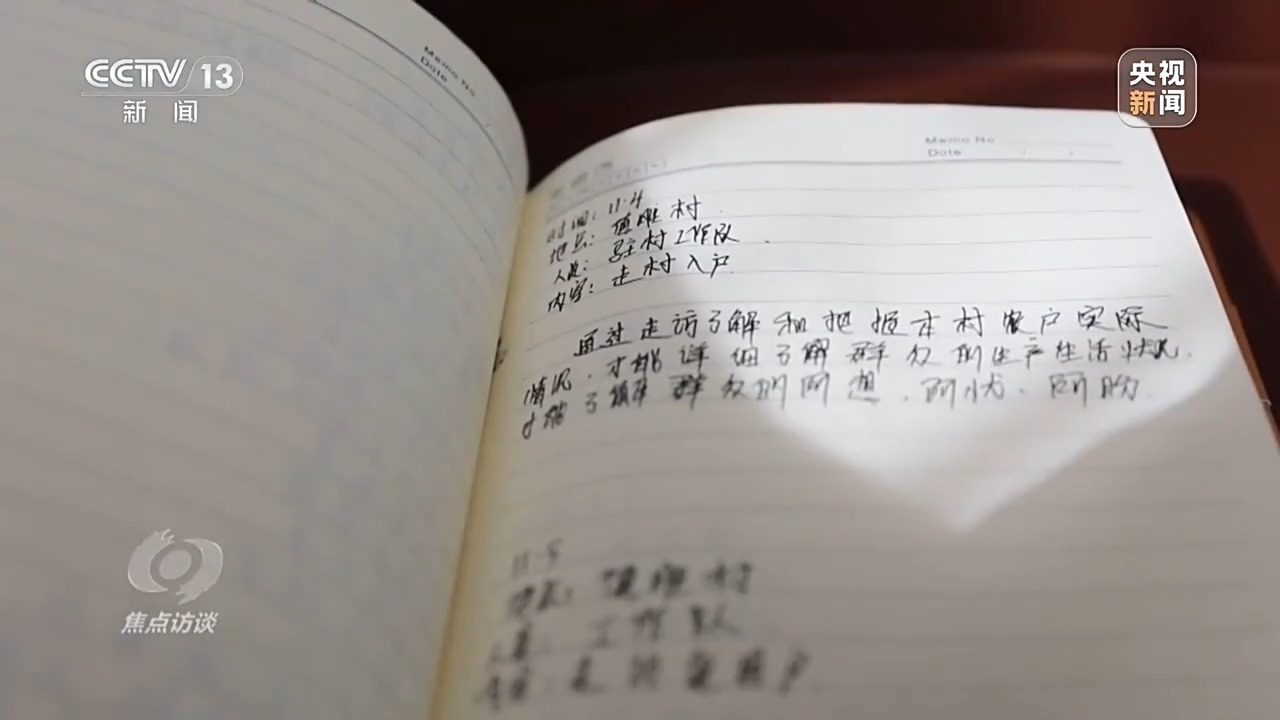 CCTV 13
新闻
央视
新闻
Memo No
Date
Memo No
Date
时间：11.4
地点：值雅村
人员：驻村工作队
内容：走村入户
通过走访了解和把握本村农户实际
情况，才能详细了解群众的生产生活状况，
才能了解群众的所想、所忧、所盼
11.5
地点：值雅村
人员：工作队
内容：走访农户
焦点访谈